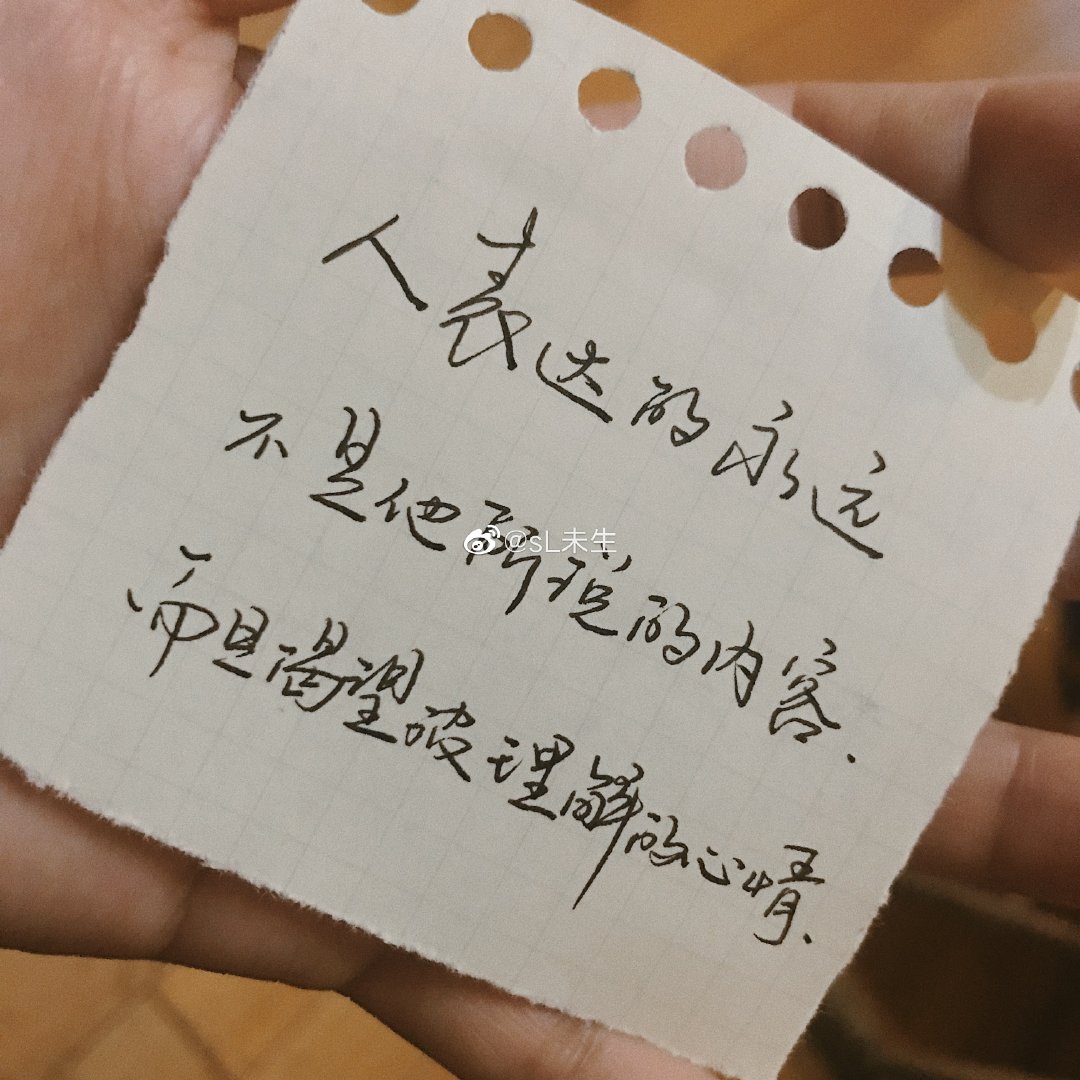 人表达的永远
不是他所说的内容.
而且渴望被理解的心情.
@sL未生